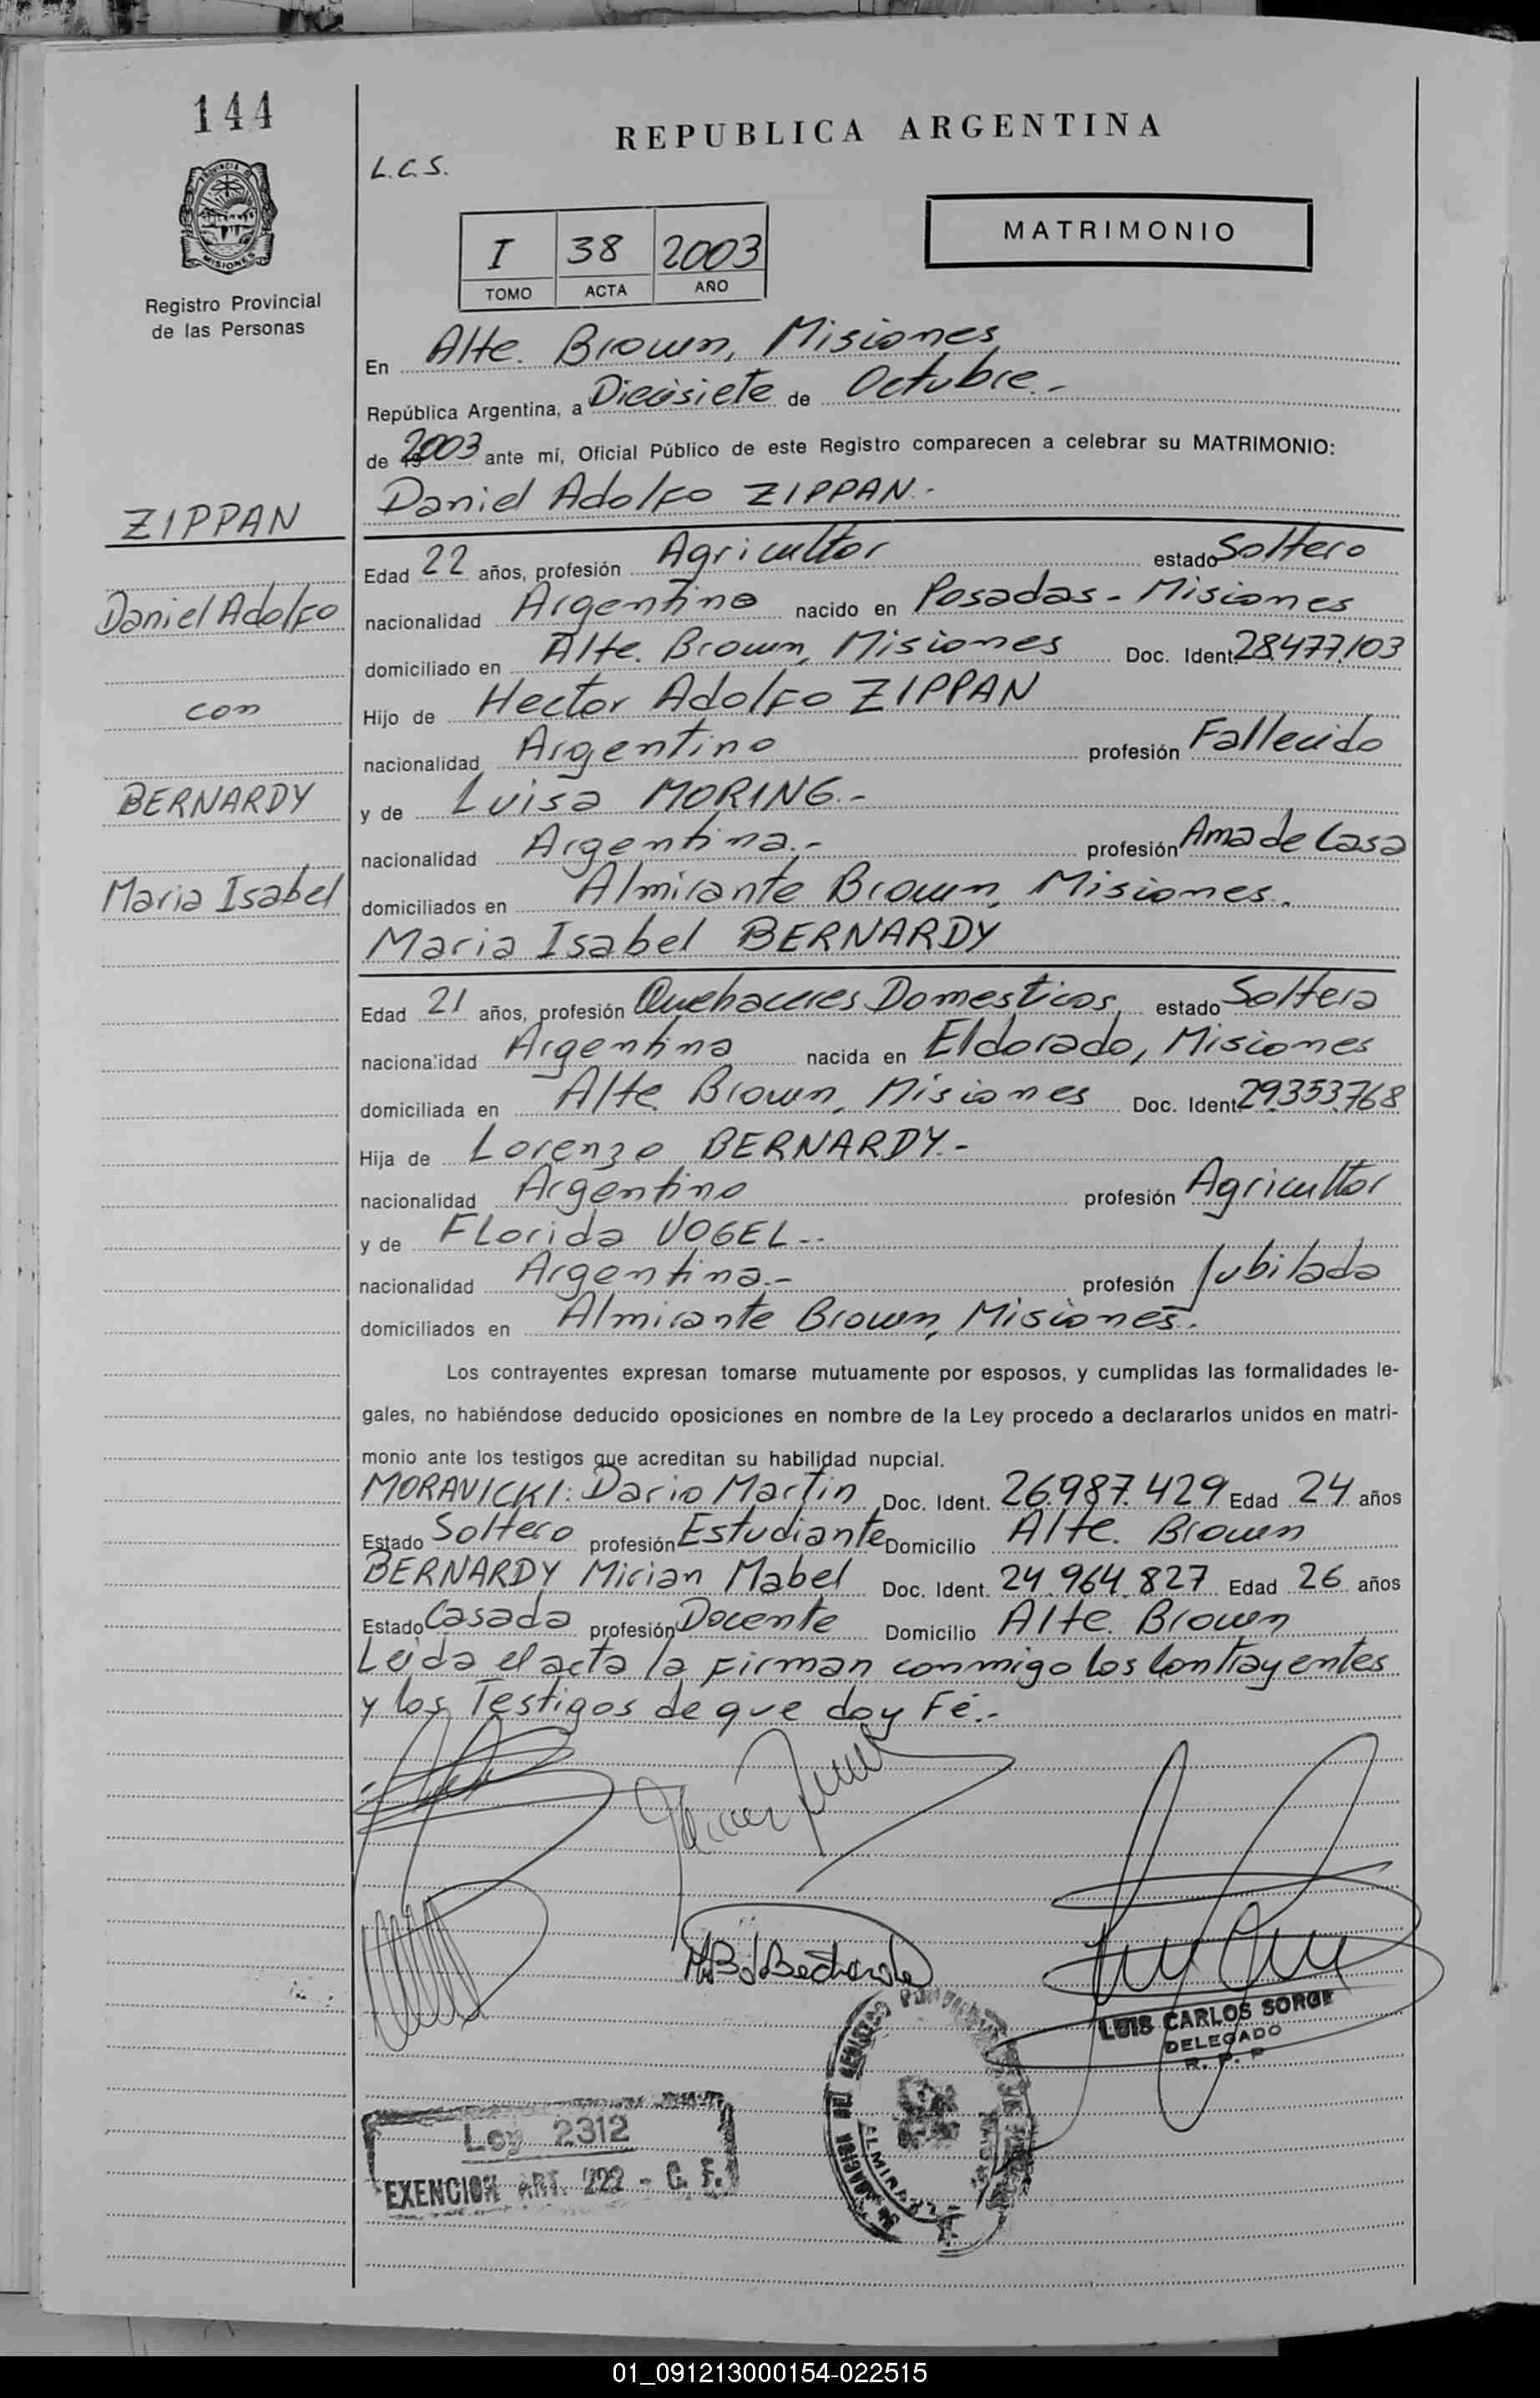 144
PROVINCIA DE
MISIONES
Registro Provincial
de las Personas
REPUBLICA ARGENTINA
L.C.S.
I 38 2003
TOMO ACTA AÑO
MATRIMONIO
En Alte. Brown, Misiones
República Argentina, a Diecisiete de Octubre.-
de 2003 ante mí, Oficial Público de este Registro comparecen a celebrar su MATRIMONIO:
Daniel Adolfo ZIPPAN.-
ZIPPAN
Daniel Adolfo
con
BERNARDY
Maria Isabel
Edad 22 años, profesión Agricultor estado Soltero
nacionalidad Argentino nacido en Posadas - Misiones
domiciliado en Alte. Brown, Misiones Doc. Ident. 28.477.103
Hijo de Hector Adolfo ZIPPAN
nacionalidad Argentino profesión Fallecido
y de Luisa MORING.-
nacionalidad Argentina.- profesión Ama de Casa
domiciliados en Almirante Brown, Misiones.
Maria Isabel BERNARDY
Edad 21 años, profesión Quehaceres Domesticos, estado Soltera
nacionalidad Argentina nacida en Eldorado, Misiones
domiciliada en Alte Brown, Misiones Doc. Ident. 29.353.768
Hija de Lorenzo BERNARDY.-
nacionalidad Argentino profesión Agricultor
y de Florida VOGEL.-
nacionalidad Argentina.- profesión Jubilada
domiciliados en Almirante Brown, Misiones.
Los contrayentes expresan tomarse mutuamente por esposos, y cumplidas las formalidades le-
gales, no habiéndose deducido oposiciones en nombre de la Ley procedo a declararlos unidos en matri-
monio ante los testigos que acreditan su habilidad nupcial.
MORAVICKI: Dario Martin Doc. Ident. 26.987.429 Edad 24 años
Estado Soltero profesión Estudiante Domicilio Alte. Brown
BERNARDY Mirian Mabel Doc. Ident. 24.964.827 Edad 26 años
Estado Casada profesión Docente Domicilio Alte. Brown
Leida el acta la firman conmigo los Contrayentes
y los Testigos de que doy Fé.-
LUIS CARLOS SORGE
DELEGADO
R. P. P
Ley 2312
EXENCION ART. 222 - C. F.
01_091213000154-022515